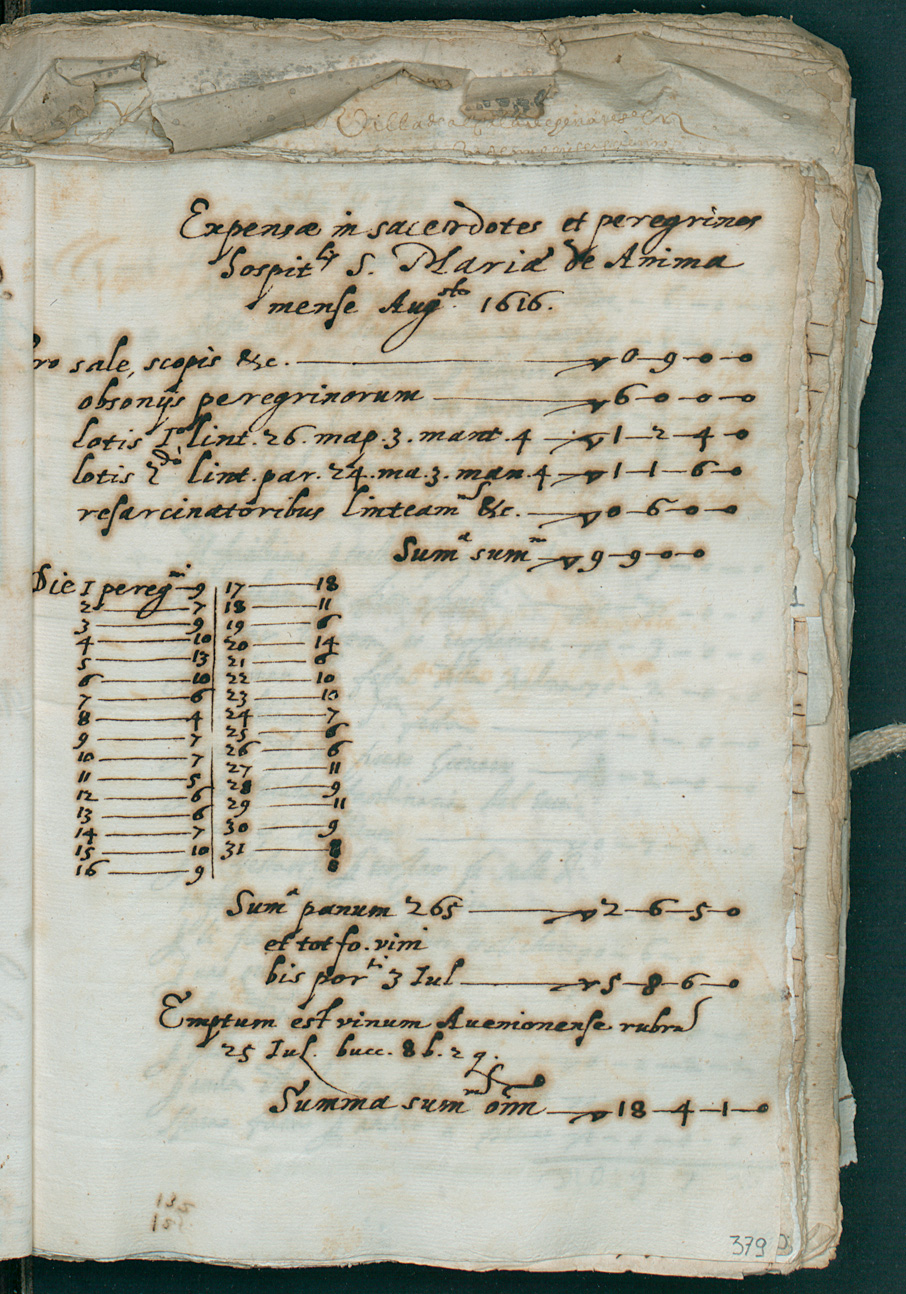 Expensæ in sacerdotes et peregrinos
hospit^lis S. Mariæ de Anima
mense Aug^sto. 1616.
Pro sale, scopis &c. ▽ 0-9-0-0
obsonijs peregrinorum ▽ 6-0-0-0
lotis I^o lint. 26. map. 3. mant. 4 ▽ 1-2-4-0
lotis 2^do lint. par. 24. ma. 3. man. 4 ▽ 1-1-6-0
resarcinatoribus linteam^m &c. ▽ 0-6-0-0
Sum^a sum^m ▽ 9-9-0-0
Die I pereg^ni 9 | 17 18
2 7 | 18 11
3 9 | 19 6
4 10 | 20 14
5 13 | 21 6
6 10 | 22 10
7 6 | 23 10
8 4 | 24 7
9 7 | 25 6
10 7 | 26 6
11 5 | 27 11
12 6 | 28 9
13 6 | 29 11
14 7 | 30 9
15 10 | 31 8
16 9 | 8
Sum^a panum 265 ▽ 2-6-5-0
et tot fo. vini
bis por^ti 3 Iul ▽ 5-8-6-0
Emptum est vinum Auenionense rubrū
25 Iul. bucc. 8 b. 2 q.
Summa sum^m oīm ▽ 18-4-1-0
379